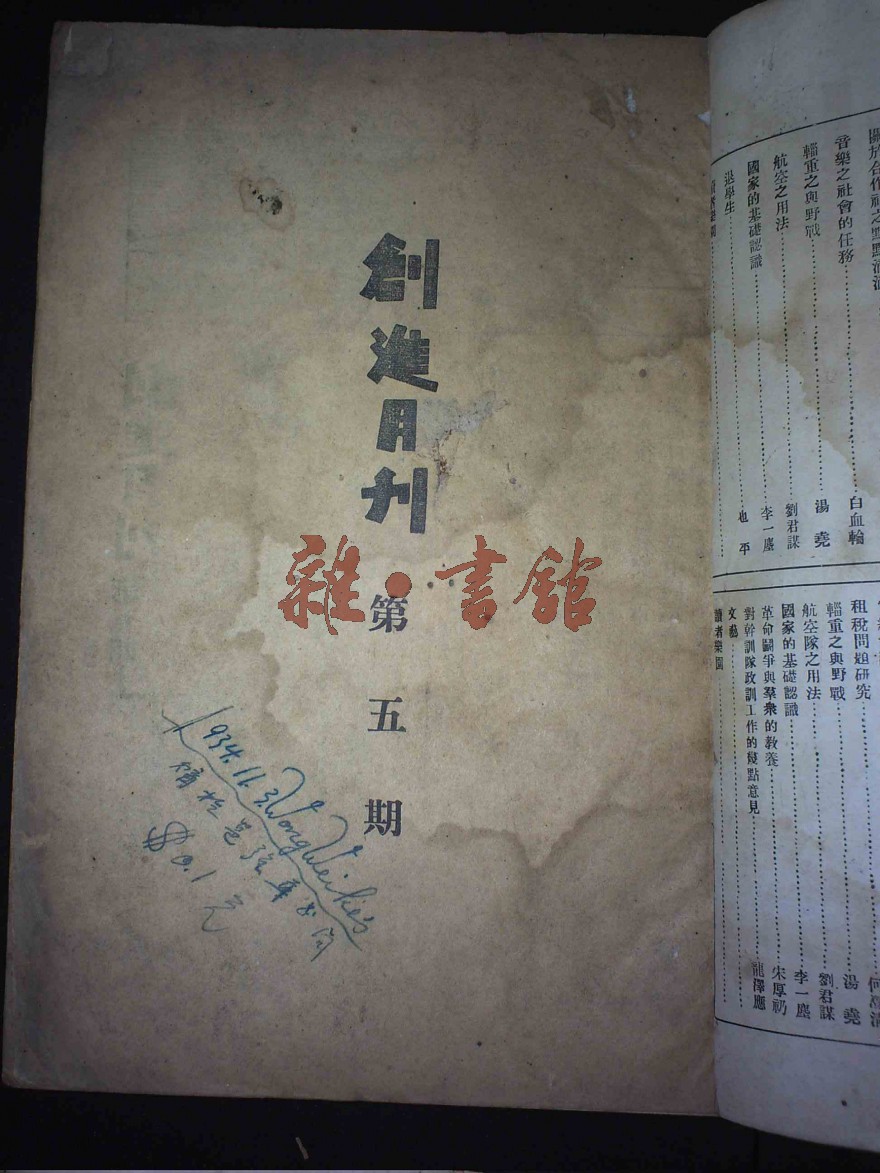 創進月刊
第五期
雜·書館
1934.11.3. Wong Weike's
$0.1元
音樂之社會的任務 白血輪
輜重之與野戰 湯堯
航空之用法 劉君謀
國家的基礎認識 李一塵
退學生 也平
租稅問題研究
輜重之與野戰 湯堯
航空隊之用法 劉君謀
國家的基礎認識 李一塵
革命鬭爭與羣衆的教養 宋厚礽
對幹訓隊政訓工作的幾點意見 龍澤應
文藝
讀者樂園